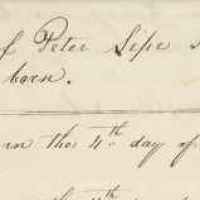 of Peter Sipe
born.
in the 4th day of